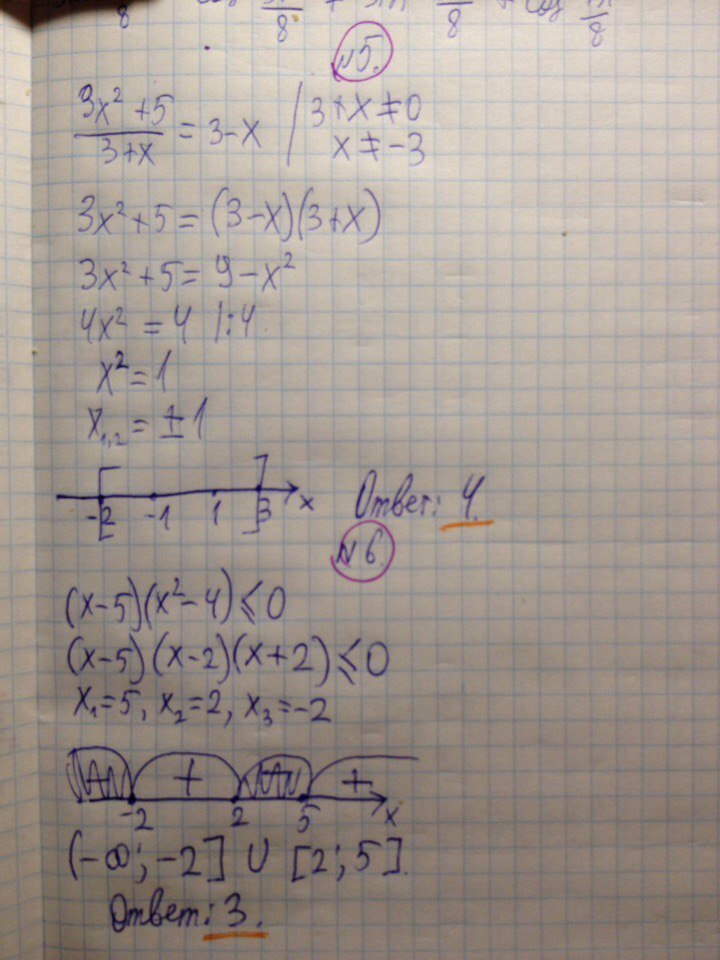 8 8 8 8
N5.
3x² + 5 / 3+x = 3-x | 3+x ≠ 0
x ≠ -3
3x² + 5 = (3-x)(3+x)
3x² + 5 = 9 - x²
4x² = 4 |:4
x² = 1
x₁,₂ = ± 1
-2 -1 1 3 x
Ответ: 4.
N 6.
(x-5)(x²-4) ≤ 0
(x-5)(x-2)(x+2) ≤ 0
x₁=5, x₂=2, x₃=-2
+ +
-2 2 5 x
(-∞; -2] ∪ [2; 5].
Ответ: 3.